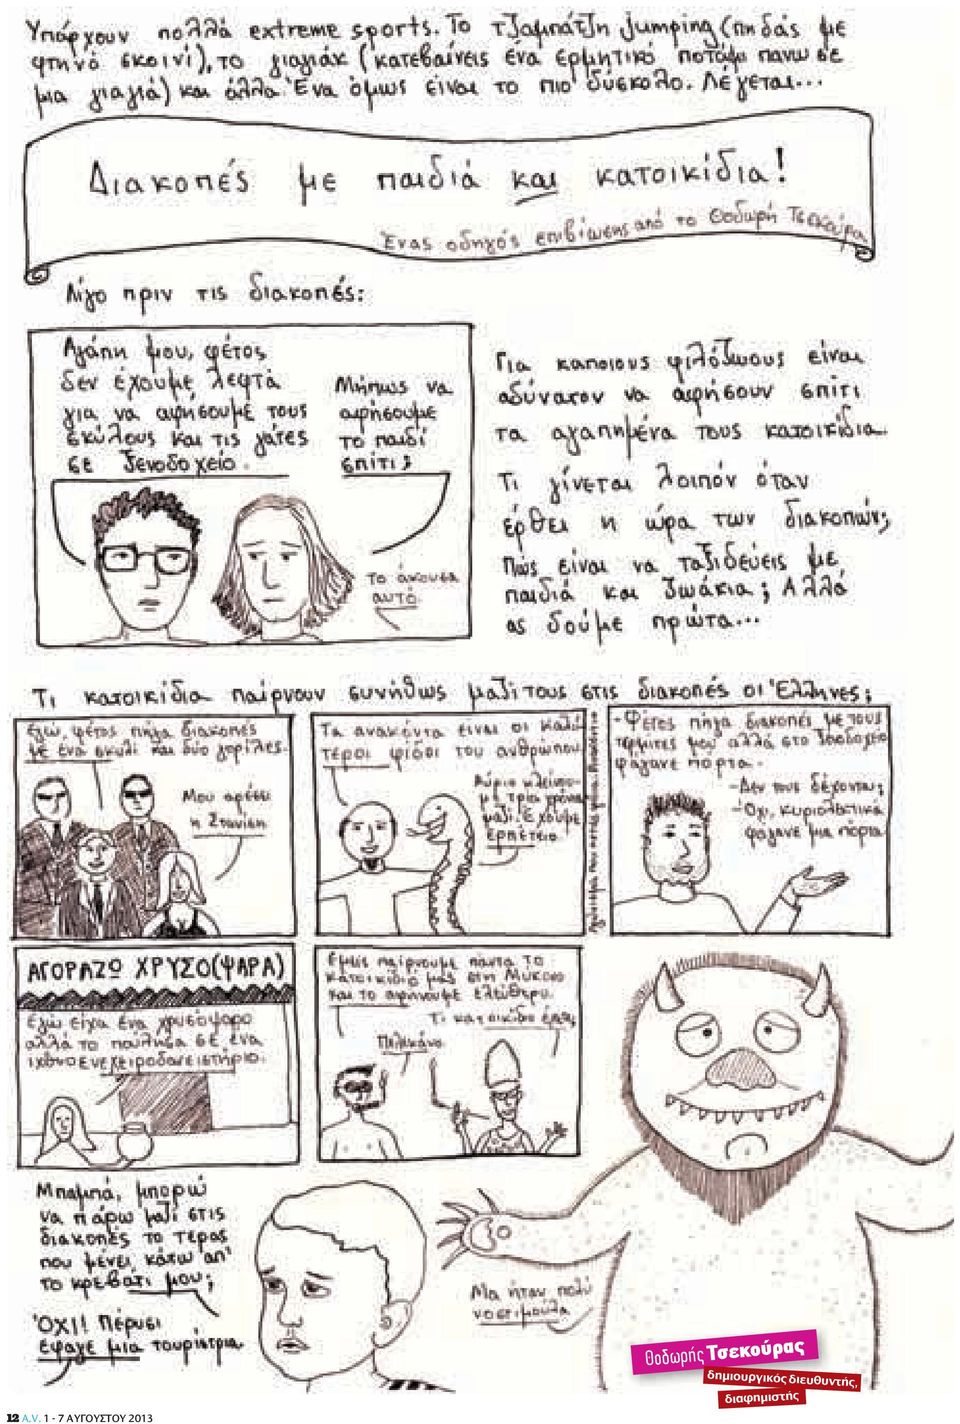 Υπάρχουν πολλά extreme sports. Το τζαμπάτζη jumping (πηδάς με
φτηνό σκοινί), το γιαγιάκ (κατεβαίνεις ένα ορμητικό ποτάμι πάνω σε
μια γιαγιά) και άλλα. Ένα όμως είναι το πιο δύσκολο. Λέγεται...
Διακοπές με παιδιά και κατοικίδια!
Ένας οδηγός επιβίωσης από το Θοδωρή Τσεκούρα
Λίγο πριν τις διακοπές:
Αγάπη μου, φέτος
δεν έχουμε λεφτά
για να αφήσουμε τους
σκύλους και τις γάτες
σε ξενοδοχείο.
Μήπως να
αφήσουμε
το παιδί
σπίτι;
Το άκουσα
αυτό.
Για κάποιους φιλόζωους είναι
αδύνατον να αφήσουν σπίτι
τα αγαπημένα τους κατοικίδια.
Τι γίνεται λοιπόν όταν
έρθει η ώρα των διακοπών;
Πώς είναι να ταξιδεύεις με
παιδιά και ζωάκια; Αλλά
ας δούμε πρώτα...
Τι κατοικίδια παίρνουν συνήθως μαζί τους στις διακοπές οι Έλληνες;
Εγώ, φέτος πήγα διακοπές
με ένα σκυλί και δύο γορίλες.
Μου αρέσει
η Στανίση
Τα ανακόντα είναι οι καλύ
τεροι φίδοι του ανθρώπου.
Αύριο κλείνου-
με τρία χρόνια
μαζί. Έχουμε
ερπέτειο.
- Φέτος πήγα διακοπές με τους
τερμίτες μου αλλά στο ξενοδοχείο
φάγανε πόρτα.
- Δεν τους δέχονται;
- Όχι, κυριολεκτικά
φάγανε μια πόρτα
ΑΓΟΡΑΖΩ ΧΡΥΣΟ(ΨΑΡΑ)
Εγώ είχα ένα χρυσόψαρο
αλλά το πούλησα σε ένα
ιχθυοενεχειροδανειστήριο.
Εμείς παίρνουμε πάντα το
κατοικίδιό μας στη Μύκονο
και το αφήνουμε ελεύθερο.
Τι κατοικίδιο έχετε;
Πελεκάνο.
Μπαμπά, μπορώ
να πάρω μαζί στις
διακοπές το τέρας
που μένει κάτω απ'
το κρεβάτι μου;
ΌΧΙ! Πέρυσι
έφαγε μια τουρίστρια.
Μα ήταν πολύ
νοστιμούλα
Θοδωρής Τσεκούρας
δημιουργικός διευθυντής,
διαφημιστής
12 A.V. 1 - 7 ΑΥΓΟΥΣΤΟΥ 2013